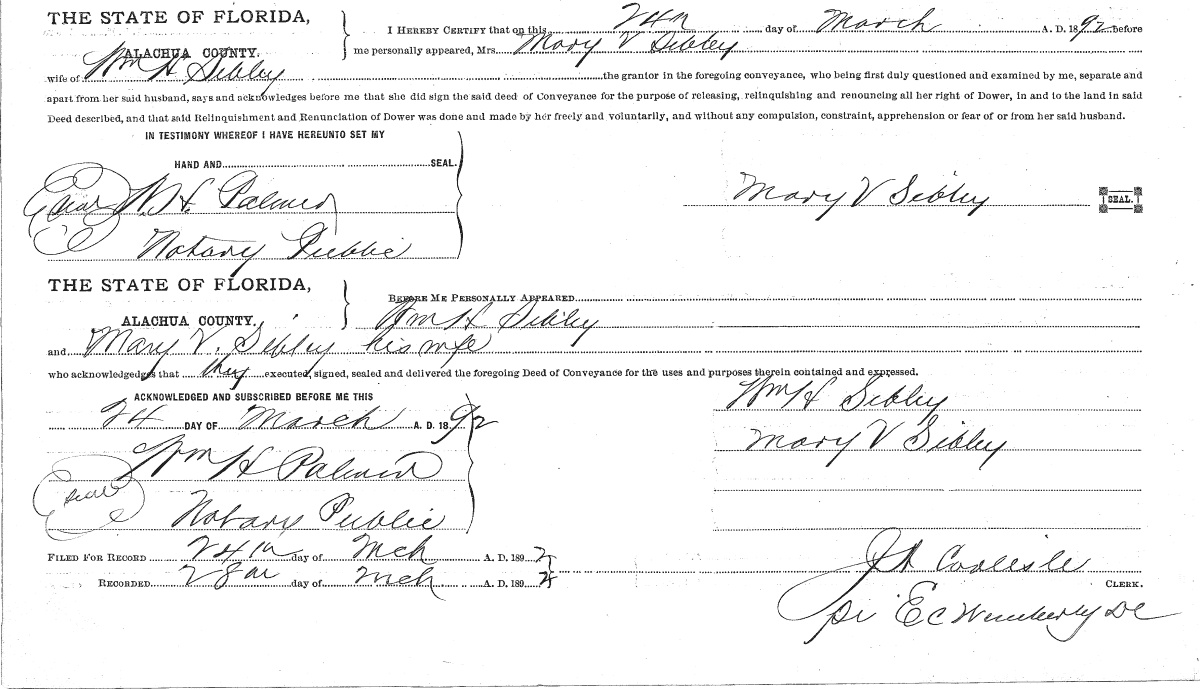 THE STATE OF FLORIDA,
ALACHUA COUNTY.
I HEREBY CERTIFY that on this 24th day of March A. D. 1892 before
me personally appeared, Mrs. Mary V Sibley
wife of Wm H Sibley the grantor in the foregoing conveyance, who being first duly questioned and examined by me, separate and
apart from her said husband, says and acknowledges before me that she did sign the said deed of Conveyance for the purpose of releasing, relinquishing and renouncing all her right of Dower, in and to the land in said
Deed described, and that said Relinquishment and Renunciation of Dower was done and made by her freely and voluntarily, and without any compulsion, constraint, apprehension or fear of or from her said husband.
IN TESTIMONY WHEREOF I HAVE HEREUNTO SET MY
HAND AND SEAL.
Seal W. H. Palmer
Mary V Sibley SEAL.
Notary Public
THE STATE OF FLORIDA,
ALACHUA COUNTY.
BEFORE ME PERSONALLY APPEARED
Wm H Sibley
and Mary V. Sibley his wife
who acknowledgedges that they executed, signed, sealed and delivered the foregoing Deed of Conveyance for the uses and purposes therein contained and expressed.
ACKNOWLEDGED AND SUBSCRIBED BEFORE ME THIS
24 DAY OF March A. D. 1892
Wm H Sibley
Mary V Sibley
Wm H Palmer
Seal
Notary Public
FILED FOR RECORD 24th day of Mch A. D. 1892
RECORDED 28th day of Mch A. D. 1892
J A Carlisle
CLERK.
pr E C Wimberly DC